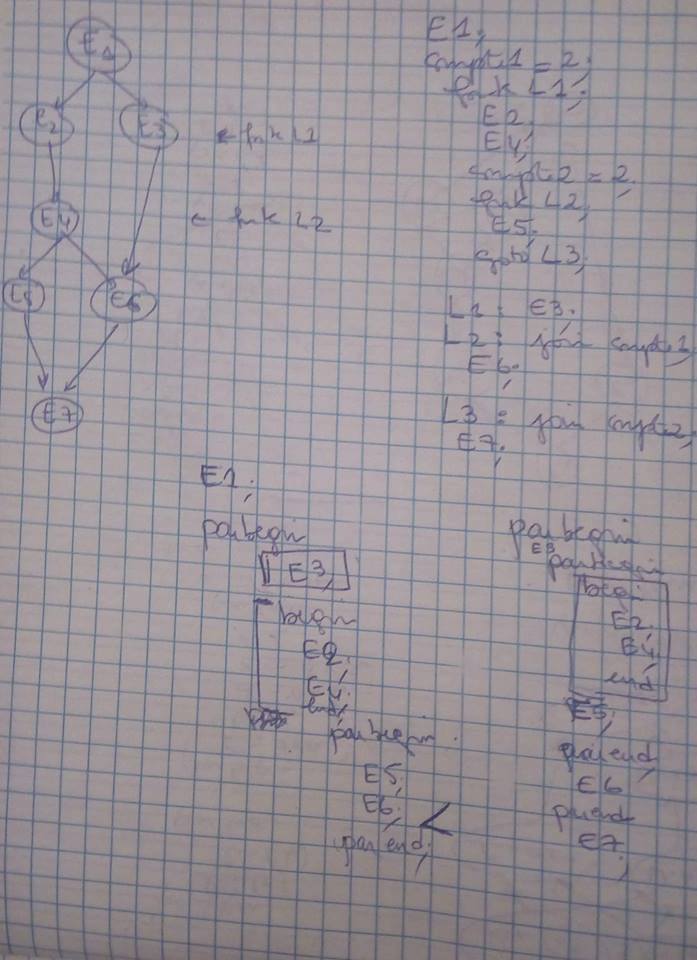 E1
E2 E3
← fork L1
E4
← fork L2
E5 E6
E7
E1;
compte1 = 2;
fork L1;
E2;
E4;
compte2 = 2;
fork L2;
E5;
goto L3;
L1 : E3;
L2 : join compte1;
E6;
L3 : join compte2;
E7;
E1;
parbegin
E3;
begin
E2;
E4;
end;
parbegin
E5;
E6;
parend;
parbegin
E3
parbegin
begin
E2;
E4;
end
E5;
parend;
E6
parend
E7;